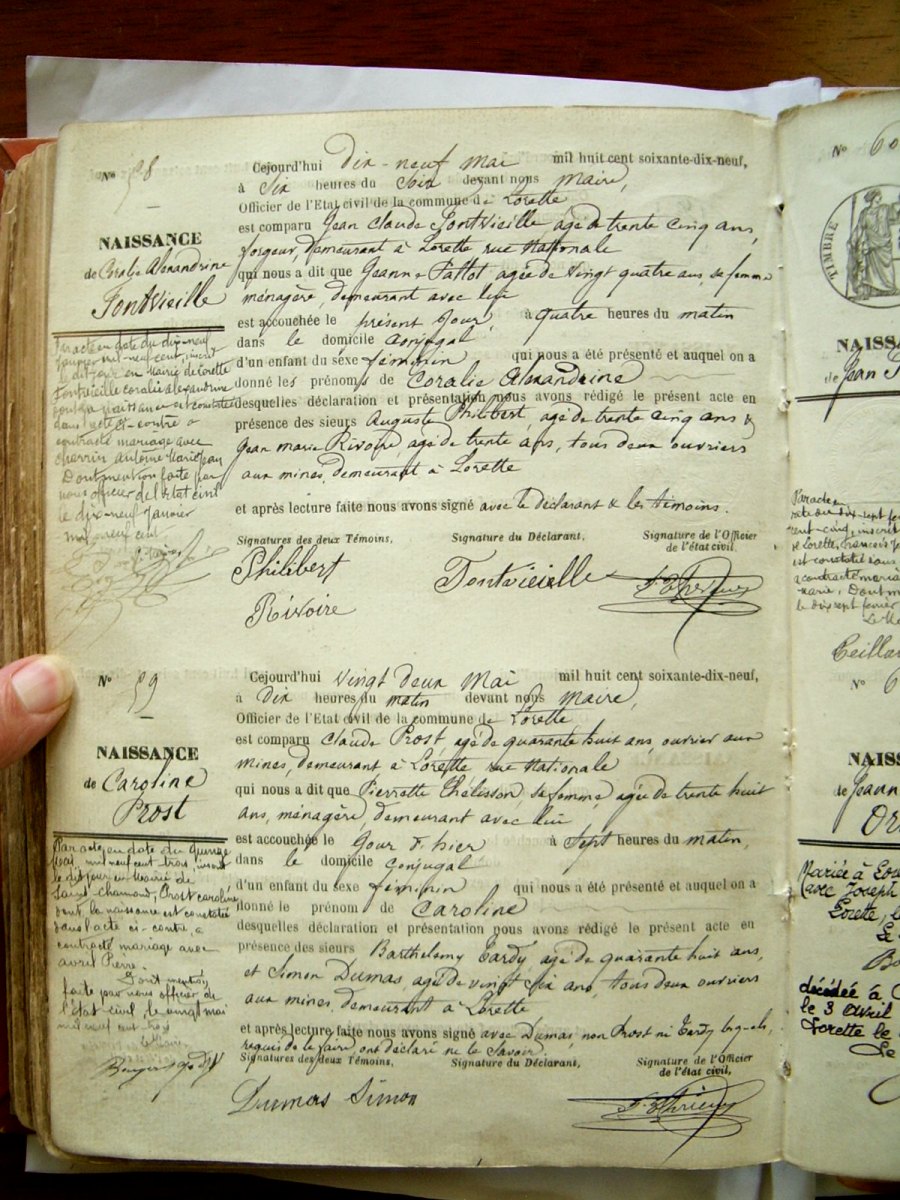 N° 58
Cejourd'hui dix-neuf Mai mil huit cent soixante-dix-neuf,
à Six heures du Soir devant nous Maire,
Officier de l'Etat civil de la commune de Lorette
est comparu Jean Claude Fontvieille agé de trente cinq ans,
forgeur, demeurant à Lorette rue Nationale
qui nous a dit que Jeanne Pattot agée de vingt quatre ans, sa femme
ménagère, demeurant avec lui
est accouchée le présent Jour, à quatre heures du matin
dans le domicile conjugal
d'un enfant du sexe féminin qui nous a été présenté et auquel on a
donné les prénoms de Coralie Alexandrine
desquelles déclaration et présentation nous avons rédigé le présent acte en
présence des sieurs Auguste Philibert, agé de trente cinq ans &
Jean marie Rivoire, agé de trente ans, tous deux ouvriers
aux mines, demeurant à Lorette
et après lecture faite nous avons signé avec le déclarant & les témoins.
Signatures des deux Témoins, Signature du Déclarant, Signature de l'Officier
de l'état civil,
Philibert Fontvieielle
Rivoire
NAISSANCE
de Coralie Alexandrine
Fontvieille
Par acte en date du dix-neuf
Janvier mil-neuf cent, inscrit
le dit jour en Mairie de Lorette
Fontvieille coralie alexandrine
dont la naissance est constatée
dans l'acte ci-contre a
contracté mariage avec
Cherrin Antoine Marie Jean
Dont mention faite par
nous officier de l'état civil
le dix-neuf Janvier
mil neuf cent
N° 59
Cejourd'hui vingt deux Mai mil huit cent soixante-dix-neuf,
à dix heures du matin devant nous Maire,
Officier de l'Etat civil de la commune de Lorette
est comparu Claude Prost, agé de quarante huit ans, ouvrier aux
mines, demeurant à Lorette rue Nationale
qui nous a dit que Pierrette Thélisson, sa femme, agée de trente huit
ans, ménagère, demeurant avec lui
est accouchée le Jour d'hier à Sept heures du matin,
dans le domicile conjugal
d'un enfant du sexe féminin qui nous a été présenté et auquel on a
donné le prénom de Caroline
desquelles déclaration et présentation nous avons rédigé le présent acte en
présence des sieurs Barthelemy Tardy agé de quarante huit ans,
et Simon Dumas, agé de vingt six ans, tous deux ouvriers
aux mines, demeurant à Lorette
et après lecture faite nous avons signé avec Dumas, non Prost ni Tardy lesquels,
requis de le faire, ont déclaré ne le savoir.
Signatures des deux Témoins, Signature du Déclarant, Signature de l'Officier
de l'état civil,
Dumas Simon
NAISSANCE
de Caroline
Prost
Par acte en date du quinze
mai, mil neuf cent trois, inscrit
le dit jour en Mairie de
Saint-Chamond, Prost caroline,
dont la naissance est constatée
dans l'acte ci-contre, a
contracté mariage avec
avril Pierre.
Dont mention
faite par nous officier de
l'état civil le vingt mai
mil neuf cent trois
Le Maire
N° 60
TIMBRE
NAISSA
de Jean
Par acte en
date du dix-sept fe
cent-cinq, inscrit
de Lorette,
est constatée dans
a contracté maria
marie. Dont m
le dix sept fevrier
N° 6
NAISS
de Jeann
Mariée à
avec Joseph
Lorette, le
décédée à
le 3 Avril
Lorette le